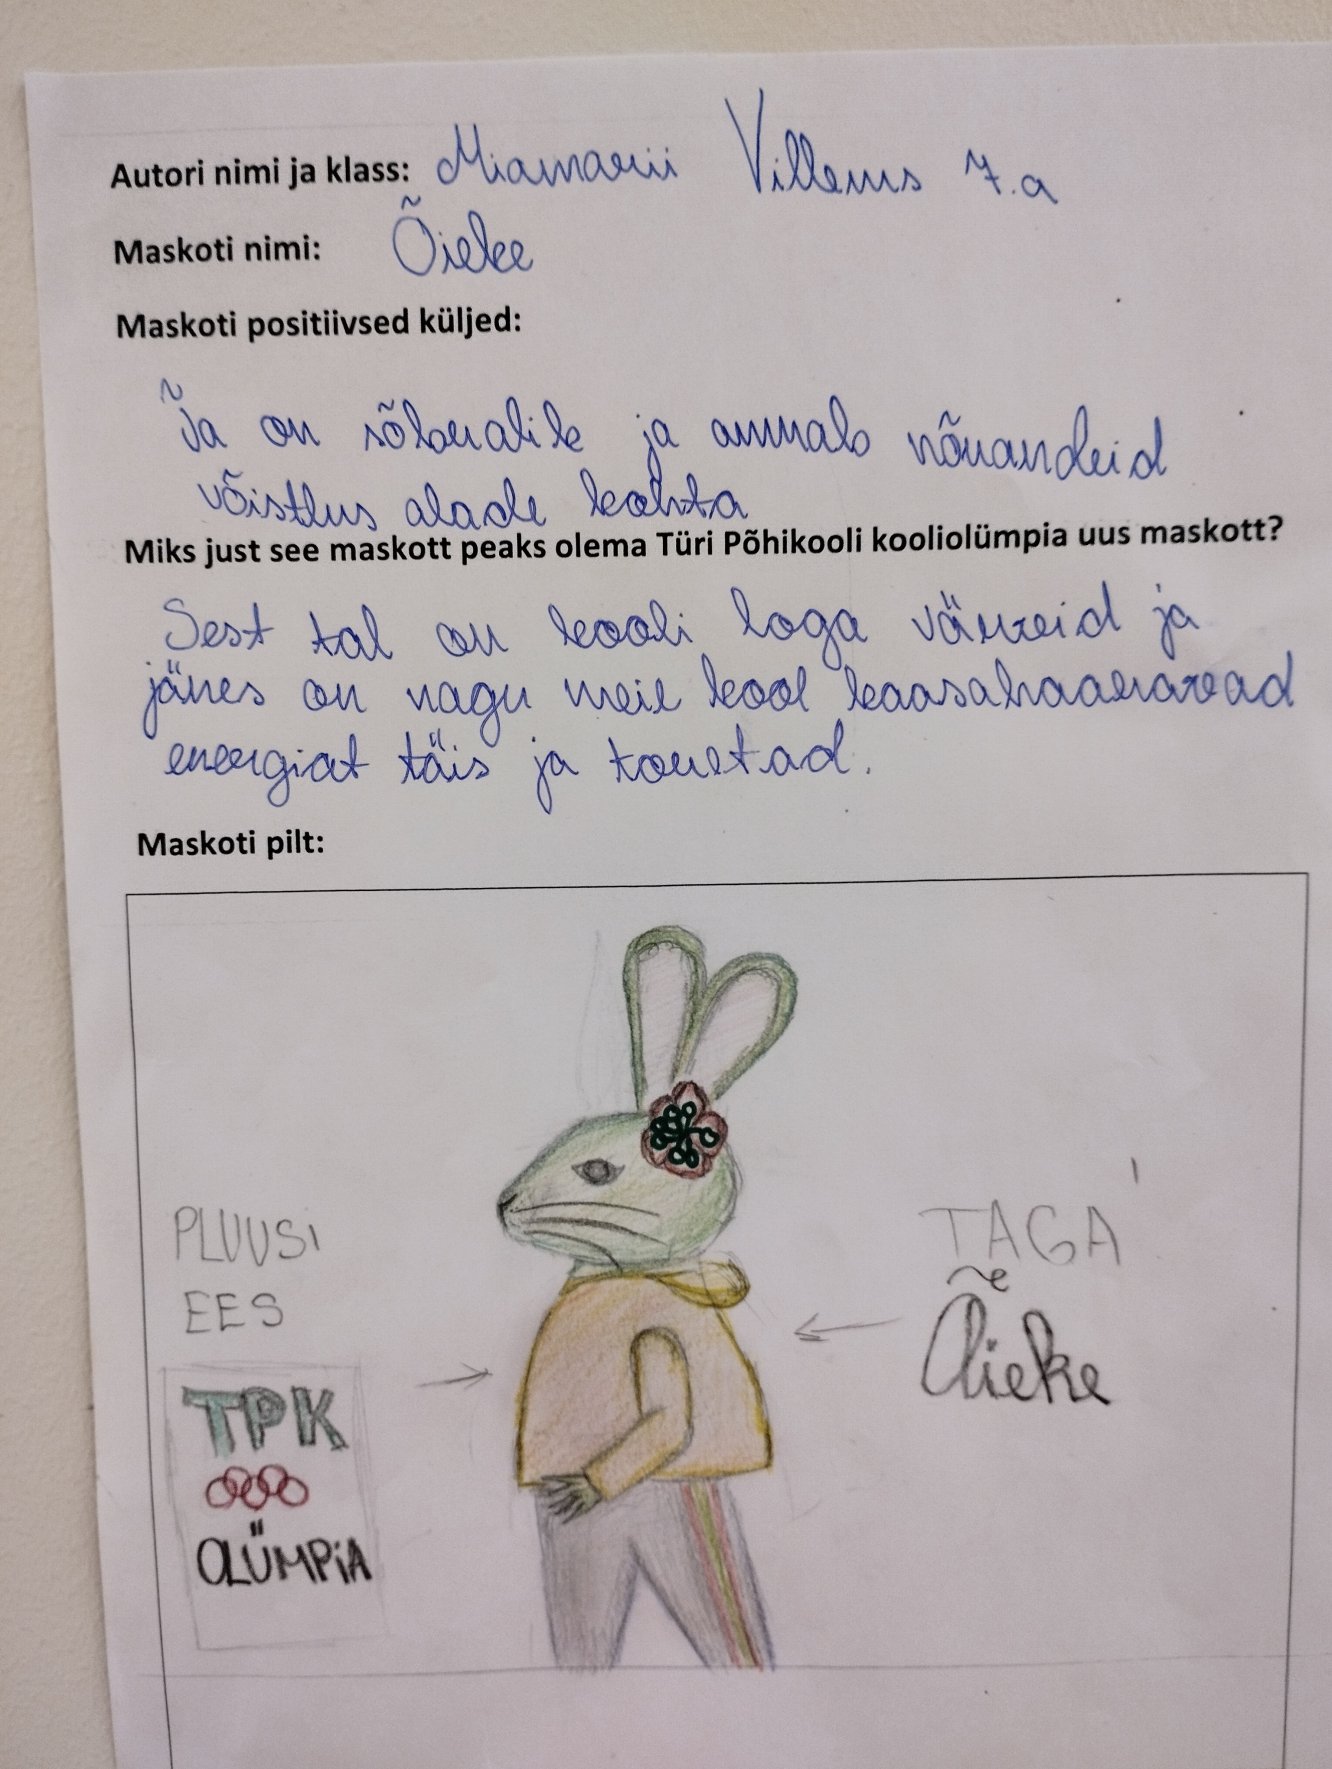 Autori nimi ja klass: Miamarii Villems 7.a
Maskoti nimi: Õieke
Maskoti positiivsed küljed:
Ta on sõbralik ja annab nõuandeid
võistlus alade kohta
Miks just see maskott peaks olema Türi Põhikooli kooliolümpia uus maskott?
Sest tal on kooli loga värveid ja
jänes on nagu meie kool kaasahaaravad
energiat täis ja toretad.
Maskoti pilt:
PLUUSI
EES
TPK
OLÜMPIA
TAGA
Õieke